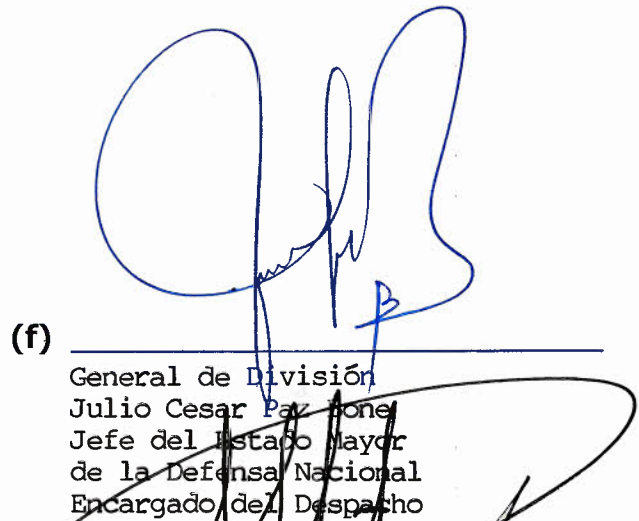 (f)
General de División
Julio Cesar Paz Bone
Jefe del Estado Mayor
de la Defensa Nacional
Encargado del Despacho